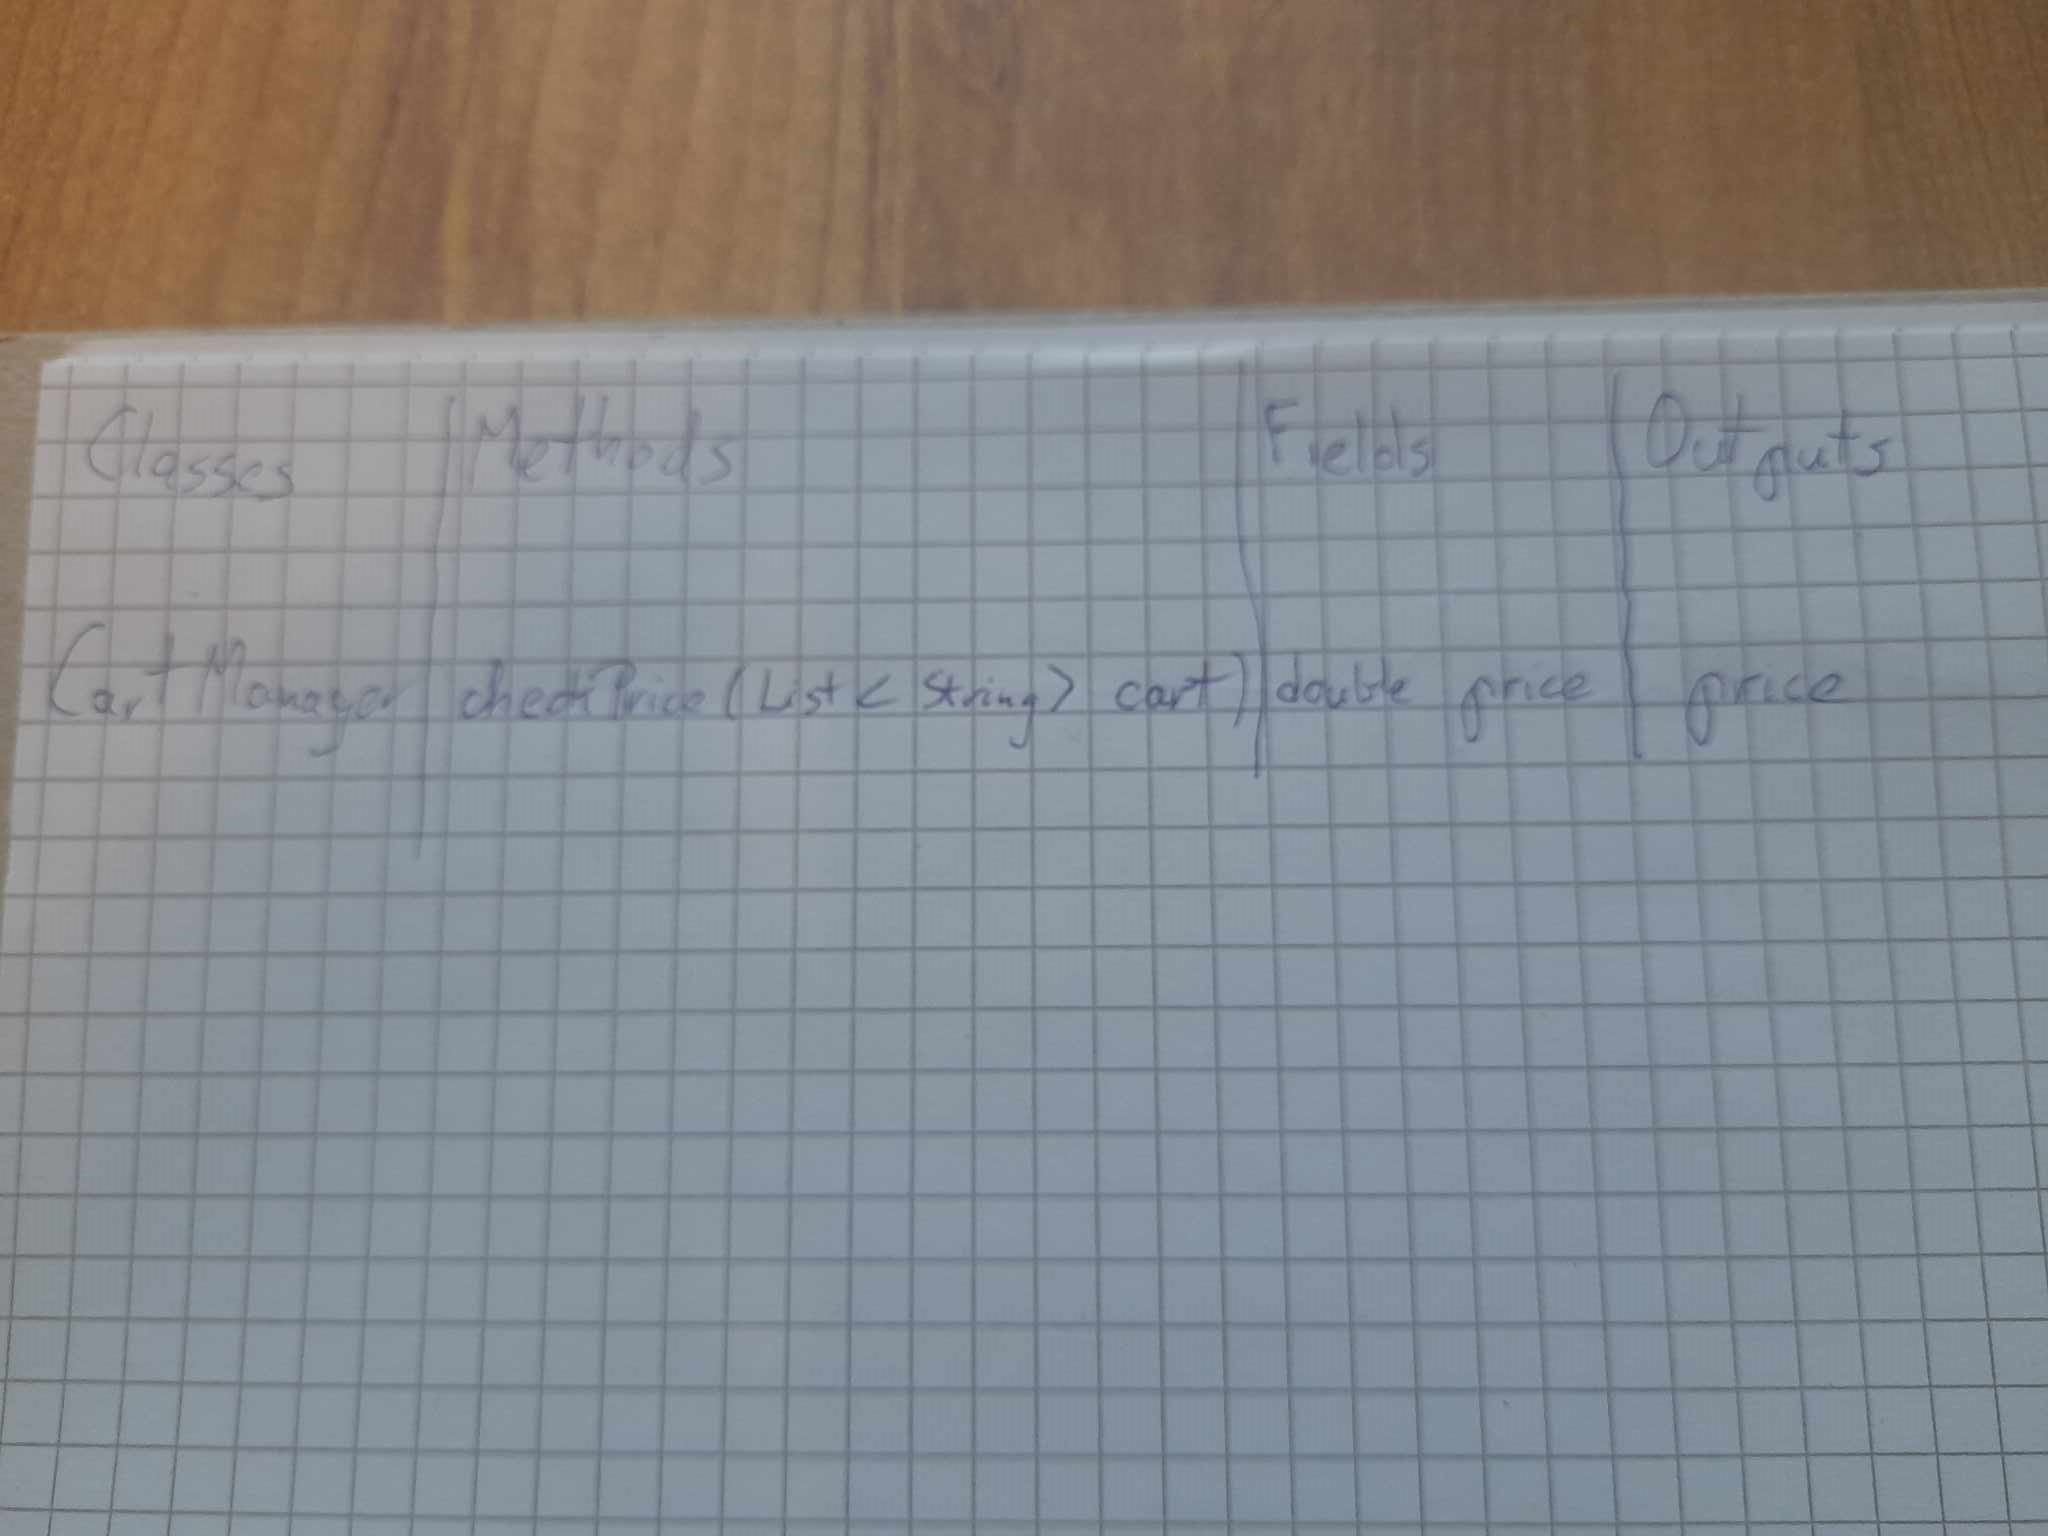 Classes Methods Fields Outputs
CartManager checkPrice (List < String > cart) double price price